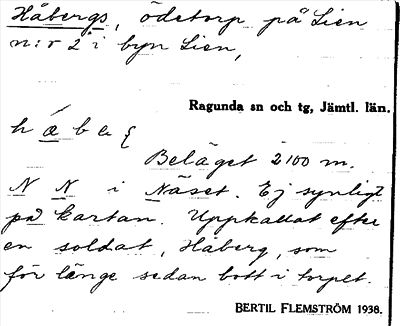 Håbergs, ödetorp på Lien
n:r 2 i byn Lien,
Ragunda sn och tg, Jämtl. län.
Beläget 2100 m.
N N i Näset. Ej synligt
på kartan. Uppkallat efter
en soldat, Håberg, som
för länge sedan bott i torpet.
BERTIL FLEMSTRÖM 1938.